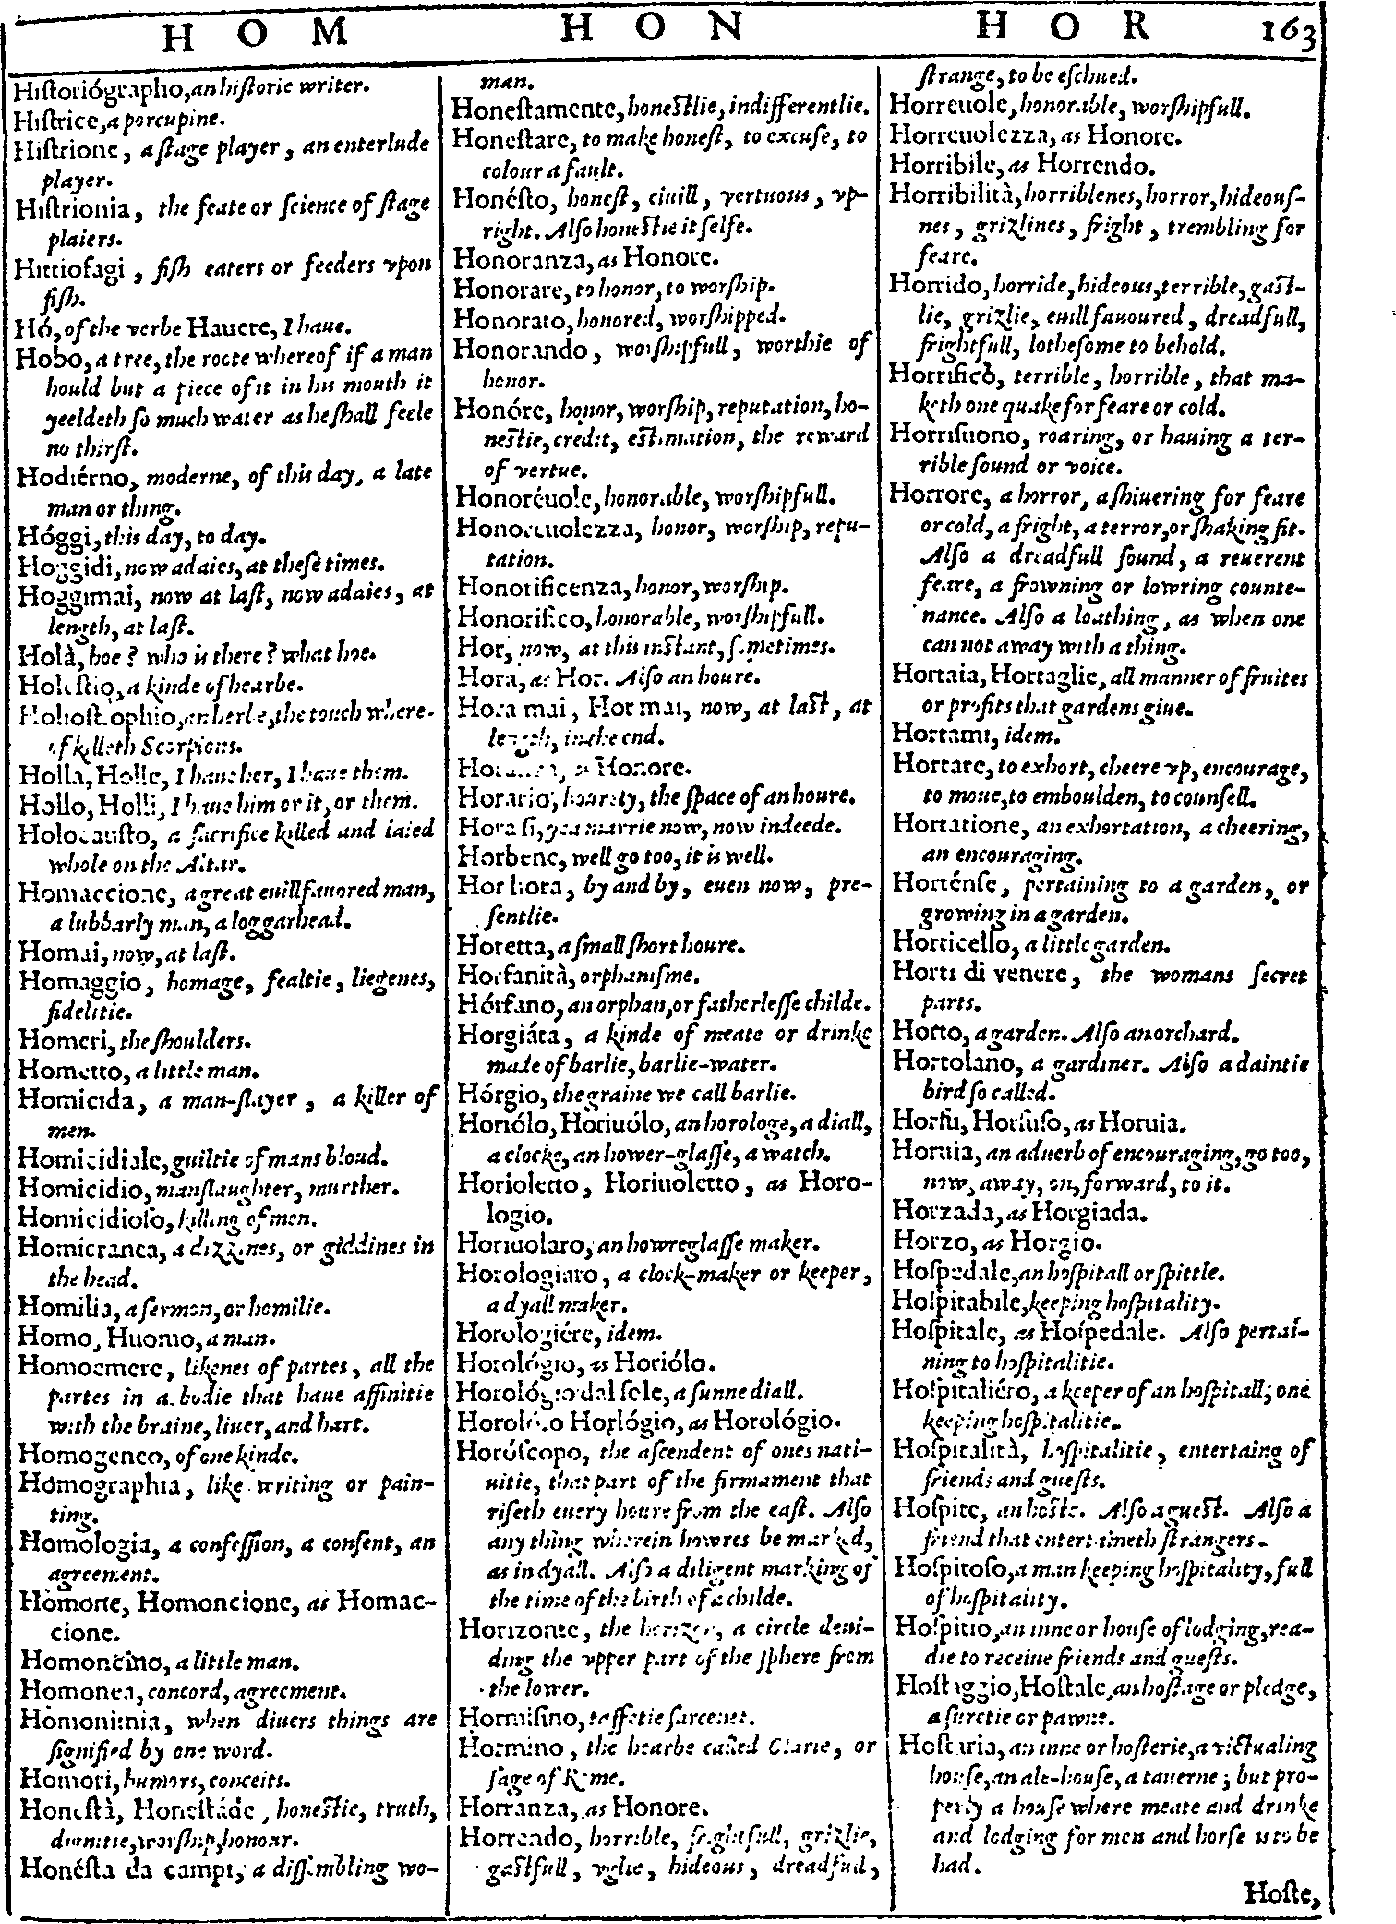 HOM HON HOR 163
Hiſtoriógrapho, an hiſtoric writer.
Hiſtrice, a porcupine.
Hiſtrione, a ſtage player, an enterlude
player.
Hiſtrionia, the feate or ſcience of ſtage
plaiers.
Hittiofagi, fiſh eaters or feeders vpon
fiſh.
Hó, of the verbe Hauere, I haue.
Hobo, a tree, the roote whereof if a man
hould but a piece of it in his mouth it
yeeldeth ſo much water as he ſhall feele
no thirſt.
Hodiérno, moderne, of this day, a late
man or thing.
Hóggi, this day, to day.
Hoggidi, now adaies, at theſe times.
Hoggimai, now at laſt, now adaies, at
length, at laſt.
Holà, hoe? who is there? what hoe.
Holoſtio, a kinde of hearbe.
an herbe, the touch where-
of killeth Scorpions.
Holla, Holle, I haue her, I haue them.
Hollo, Holli, I haue him or it, or them.
Holocauſto, a ſacrifice killed and laied
whole on the Altar.
Homaccione, a great euill fauored man,
a lubbarly man, a loggarhead.
Homai, now, at laſt.
Homaggio, homage, fealtie, liegenes,
fidelitie.
Homeri, the ſhoulders.
Hometto, a little man.
Homicida, a man-ſlayer, a killer of
men.
Homicidiale, guiltie of mans bloud.
Homicidio, manſlaughter, murther.
Homicidioſo, killing of men.
Homicranea, a dizzines, or giddines in
the head.
Homilia, a ſermon, or homilie.
Homo, Huomo, a man.
Homoemere, likenes of partes, all the
partes in a bodie that haue affinitie
with the braine, liuer, and hart.
Homogeneo, of one kinde.
Homographia, like writing or pain-
ting.
Homologia, a confeſſion, a conſent, an
agreement.
Homone, Homoncione, as Homac-
cione.
Homoncino, a little man.
Homonea, concord, agreement.
Homonimia, when diuers things are
ſignified by one word.
Homori, humors, conceits.
Honeſtà, Honeſtáde, honeſtie, truth,
dignitie, worſhip, honour.
Honéſta da campi, a diſſembling wo-
man.
Honeſtamente, honeſtlie, indifferentlie.
Honeſtare, to make honeſt, to excuſe, to
colour a fault.
Honéſto, honeſt, ciuill, vertuous, vp-
right. Alſo honeſtie it ſelfe.
Honoranza, as Honore.
Honorare, to honor, to worſhip.
Honorato, honored, worſhipped.
Honorando, worſhipfull, worthie of
honor.
Honóre, honor, worſhip, reputation, ho-
neſtie, credit, eſtimation, the reward
of vertue.
Honoréuole, honorable, worſhipfull.
Honoreuolezza, honor, worſhip, repu-
tation.
Honorificenza, honor, worſhip.
Honorifico, honorable, worſhipfull.
Hor, now, at this inſtant, ſometimes.
Hora, as Hor. Alſo an houre.
Hora mai, Hor mai, now, at laſt, at
length, in the end.
Horanza, as Honore.
Horario, hourely, the ſpace of an houre.
Hora ſi, yea marrie now, now indeede.
Horbene, well go too, it is well.
Hor hora, by and by, euen now, pre-
ſentlie.
Horetta, a ſmall ſhort houre.
Horfanità, orphaniſme.
Hórfano, an orphan, or fatherleſſe childe.
Horgiáta, a kinde of meate or drinke
made of barlie, barlie-water.
Hórgio, the graine we call barlie.
Horiólo, Horiuólo, an horologe, a diall,
a clocke, an hower-glaſſe, a watch.
Horioletto, Horiuoletto, as Horo-
logio.
Horiuolaro, an howreglaſſe maker.
Horologiaro, a clock-maker or keeper,
a dyall maker.
Horologiére, idem.
Horológio, as Horiólo.
Horológio dal ſole, a ſunne diall.
Horlógio, as Horológio.
Horóſcopo, the aſcendent of ones nati-
uitie, that part of the firmament that
riſeth euery houre from the eaſt. Alſo
any thing wherein howres be marked,
as in dyall. Alſo a diligent marking of
the time of the birth of a childe.
Horizonte, the horizon, a circle deui-
ding the vpper part of the ſphere from
the lower.
Hormiſino, taffetie ſarcenet.
Hormino, the hearbe called Clarie, or
ſage of Rome.
Horranza, as Honore.
Horrendo, horrible, frightfull, grizlie,
gaſtfull, vglie, hideous, dreadfull,
ſtrange, to be eſchued.
Horreuole, honorable, worſhipfull.
Horreuolezza, as Honore.
Horribile, as Horrendo.
Horribilità, horriblenes, horror, hideouſ-
nes, grizlines, fright, trembling for
feare.
Horrido, horride, hideous, terrible, gaſt-
lie, grizlie, euill fauoured, dreadfull,
frightfull, lotheſome to behold.
Horrifico, terrible, horrible, that ma-
keth one quake for feare or cold.
Horriſuono, roaring, or hauing a ter-
rible ſound or voice.
Horrore, a horror, a ſhiuering for feare
or cold, a fright, a terror, or ſhaking fit.
Alſo a dreadfull ſound, a reuerent
feare, a frowning or lowring counte-
nance. Alſo a loathing, as when one
can not away with a thing.
Hortaia, Hortaglie, all manner of fruites
or profits that gardens giue.
Hortami, idem.
Hortare, to exhort, cheere vp, encourage,
to moue, to emboulden, to counſell.
Hortatione, an exhortation, a cheering,
an encouraging.
Horténſe, pertaining to a garden, or
growing in a garden.
Horticello, a little garden.
Horti di venere, the womans ſecret
parts.
Horto, a garden. Alſo an orchard.
Hortolano, a gardiner. Alſo a daintie
bird ſo called.
Horſu, Horſuſo, as Horuia.
Horuia, an aduerb of encouraging, go too,
now, away, on, forward, to it.
Horzada, as Horgiada.
Horzo, as Horgio.
Hoſpedale, an hoſpitall or ſpittle.
Hoſpitabile, keeping hoſpitality.
Hoſpitale, as Hoſpedale. Alſo pertai-
ning to hoſpitalitie.
Hoſpitaliéro, a keeper of an hoſpitall; one
keeping hoſpitalitie.
Hoſpitalità, hoſpitalitie, entertaing of
friends and gueſts.
Hoſpite, an hoſte. Alſo a gueſt. Alſo a
friend that entertaineth ſtrangers.
Hoſpitoſo, a man keeping hoſpitality, full
of hoſpitality.
Hoſpitio, an inne or houſe of lodging, rea-
die to receiue friends and gueſts.
Hoſtaggio, Hoſtale, an hoſtage or pledge,
a ſuretie or pawne.
Hoſtaria, an inne or hoſterie, a victualing
houſe, an ale-houſe, a tauerne; but pro-
perly a houſe where meate and drinke
and lodging for men and horſe is to be
had.
Hoſte,